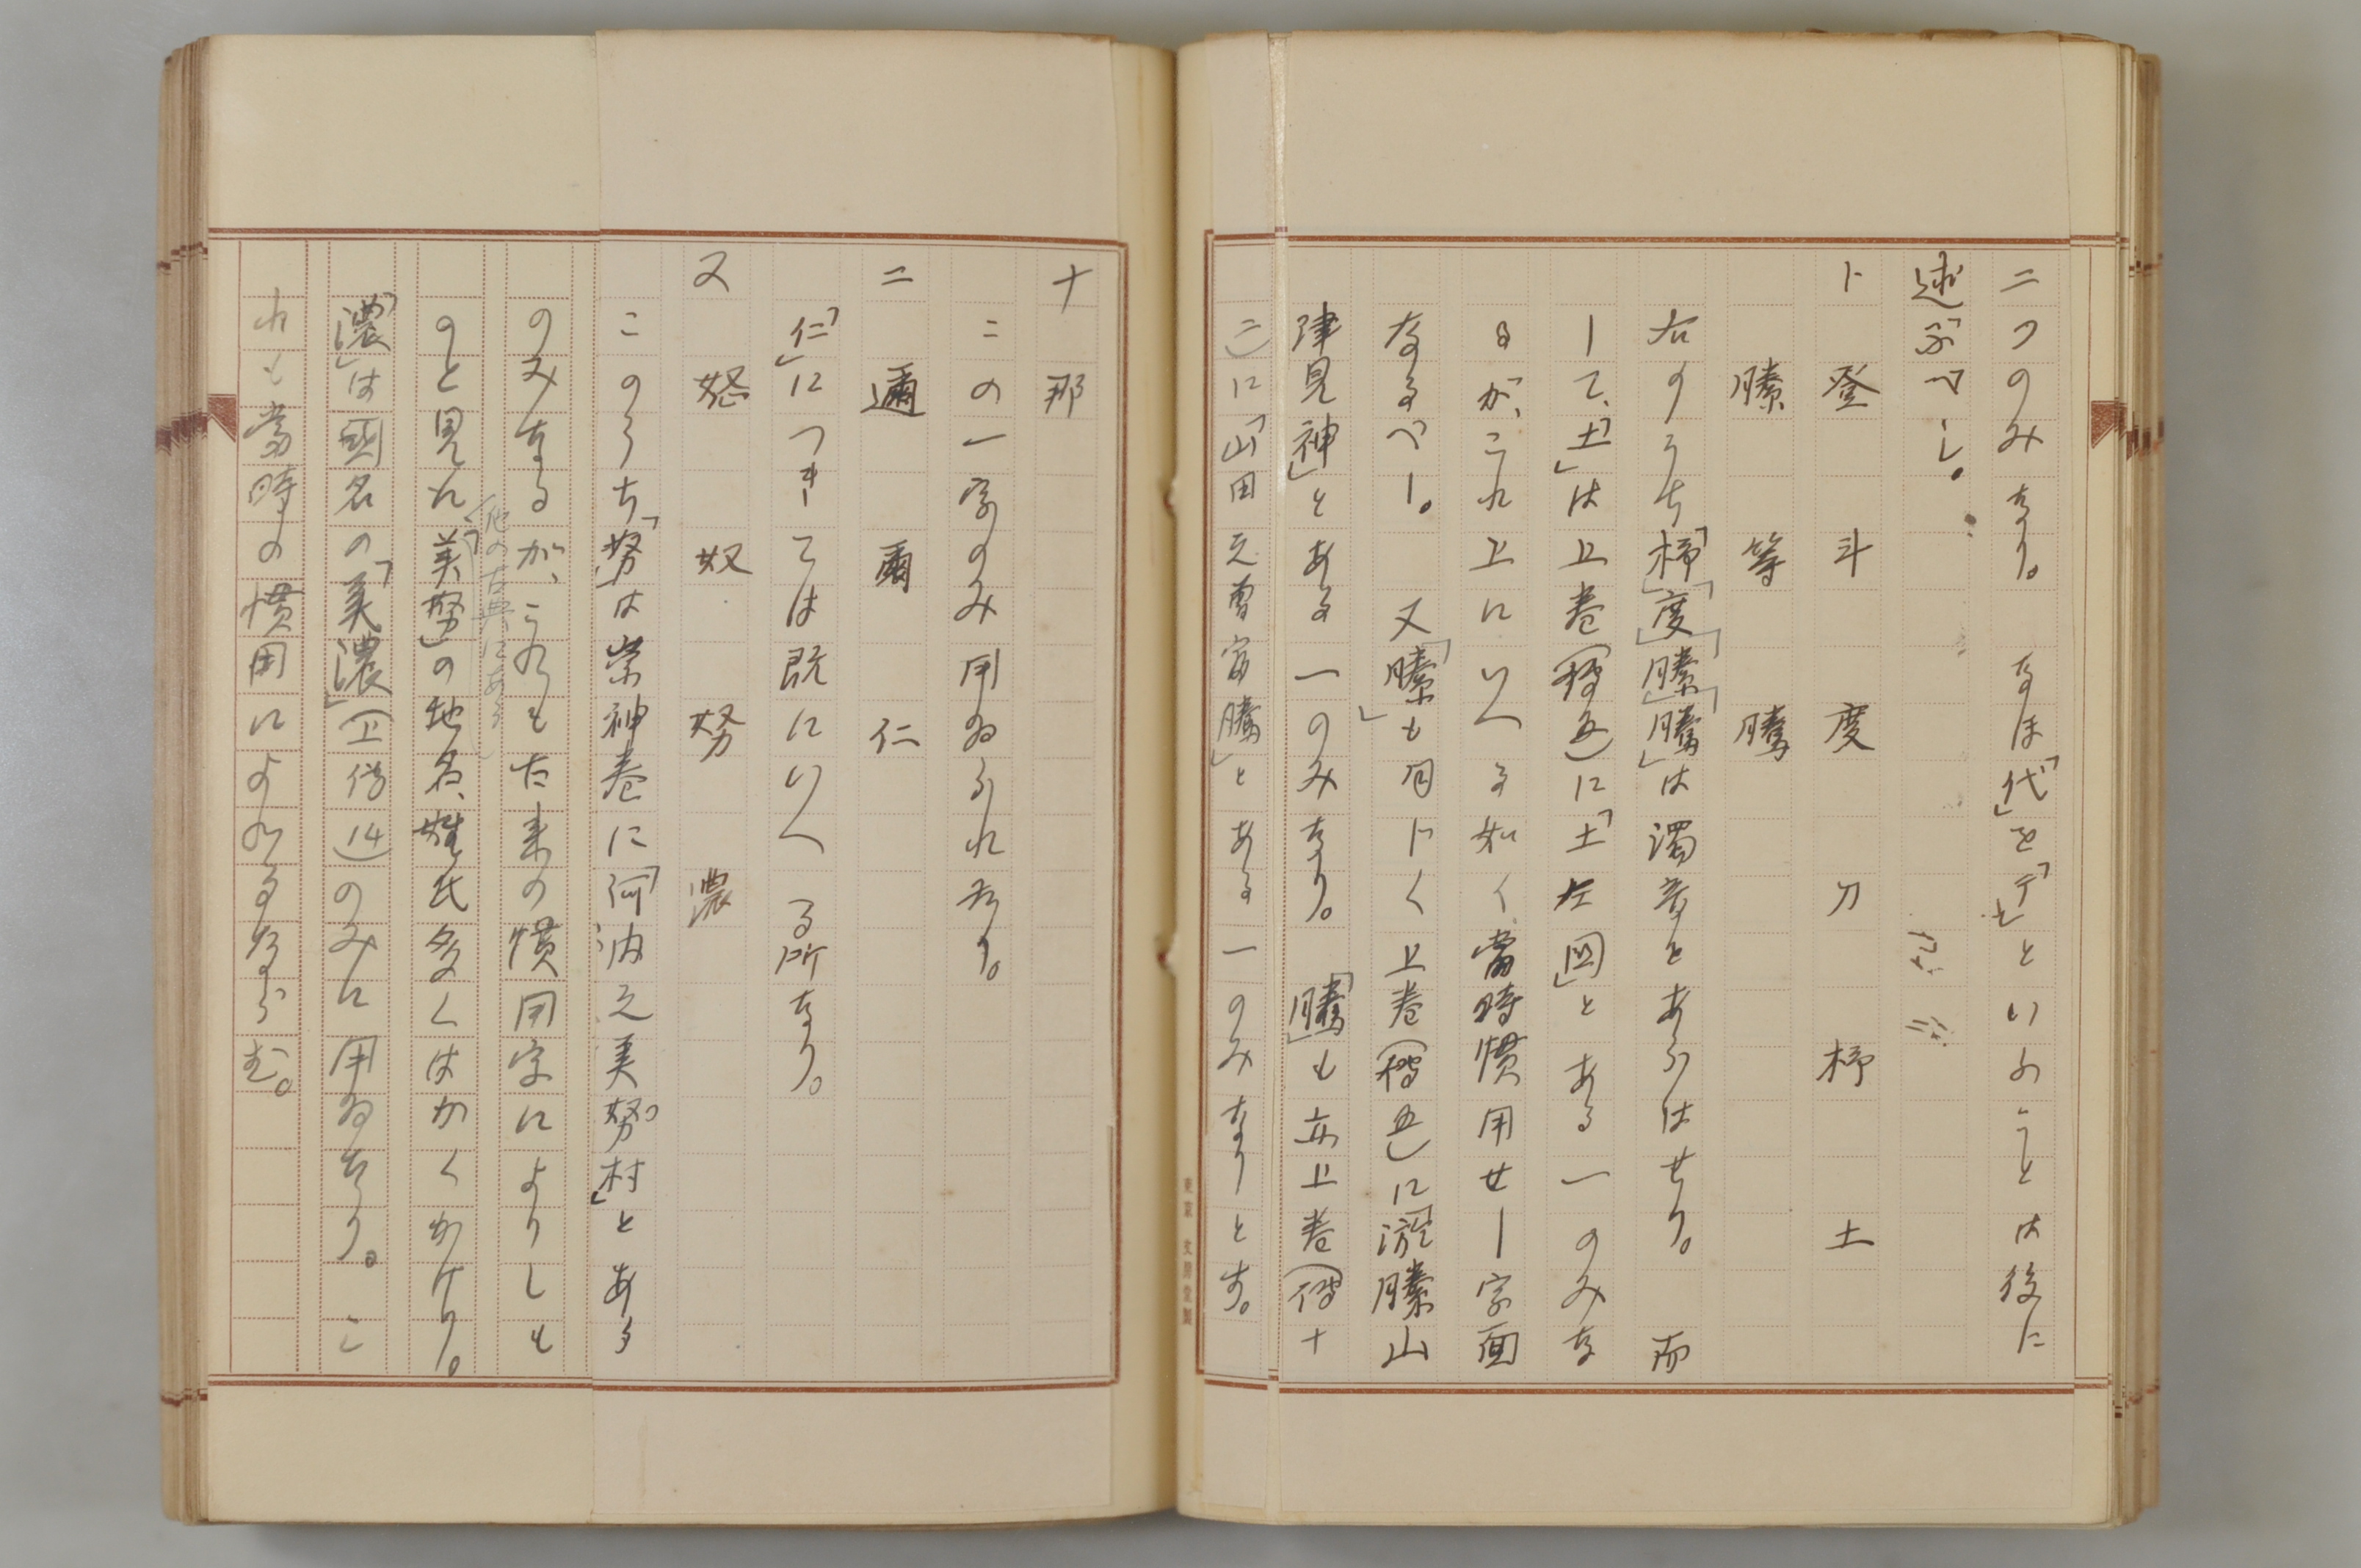 二つのみなり。なほ「代」を「デ」といふことは後に
述ぶべし。
ト 登 斗 度 刀 杼 土
縢 等 騰
右のうち「杼」「度」「縢」「騰」は濁音とあらはせり。而
して、「土」は上巻(傳五)に「土左國」とある一のみな
るが、これ上にいへる如く當時慣用せし字面
なるべし。又「縢」も同じく上巻(傳五)に「淤縢山
津見神」とある一のみなり。「騰」も亦上巻(傳十
二)に「山田之曽富騰」とある一のみなりとす。
ナ 那
この一字のみ用ゐられたり。
ニ 邇 爾 仁
「仁」につきては既にいへる所なり。
ヌ 怒 奴 努 濃
このうち「努」は崇神巻に「河内之美努村」とある
のみなるが、これも古来の慣用字によりしも
のと見え「美努」の地名、姓氏多くはかくかけり。
(他の古典にある)
「濃」は國名の「美濃」(上傳14)のみに用ゐたり。こ
れも當時の慣用によれるならむ。
東京 文房堂製